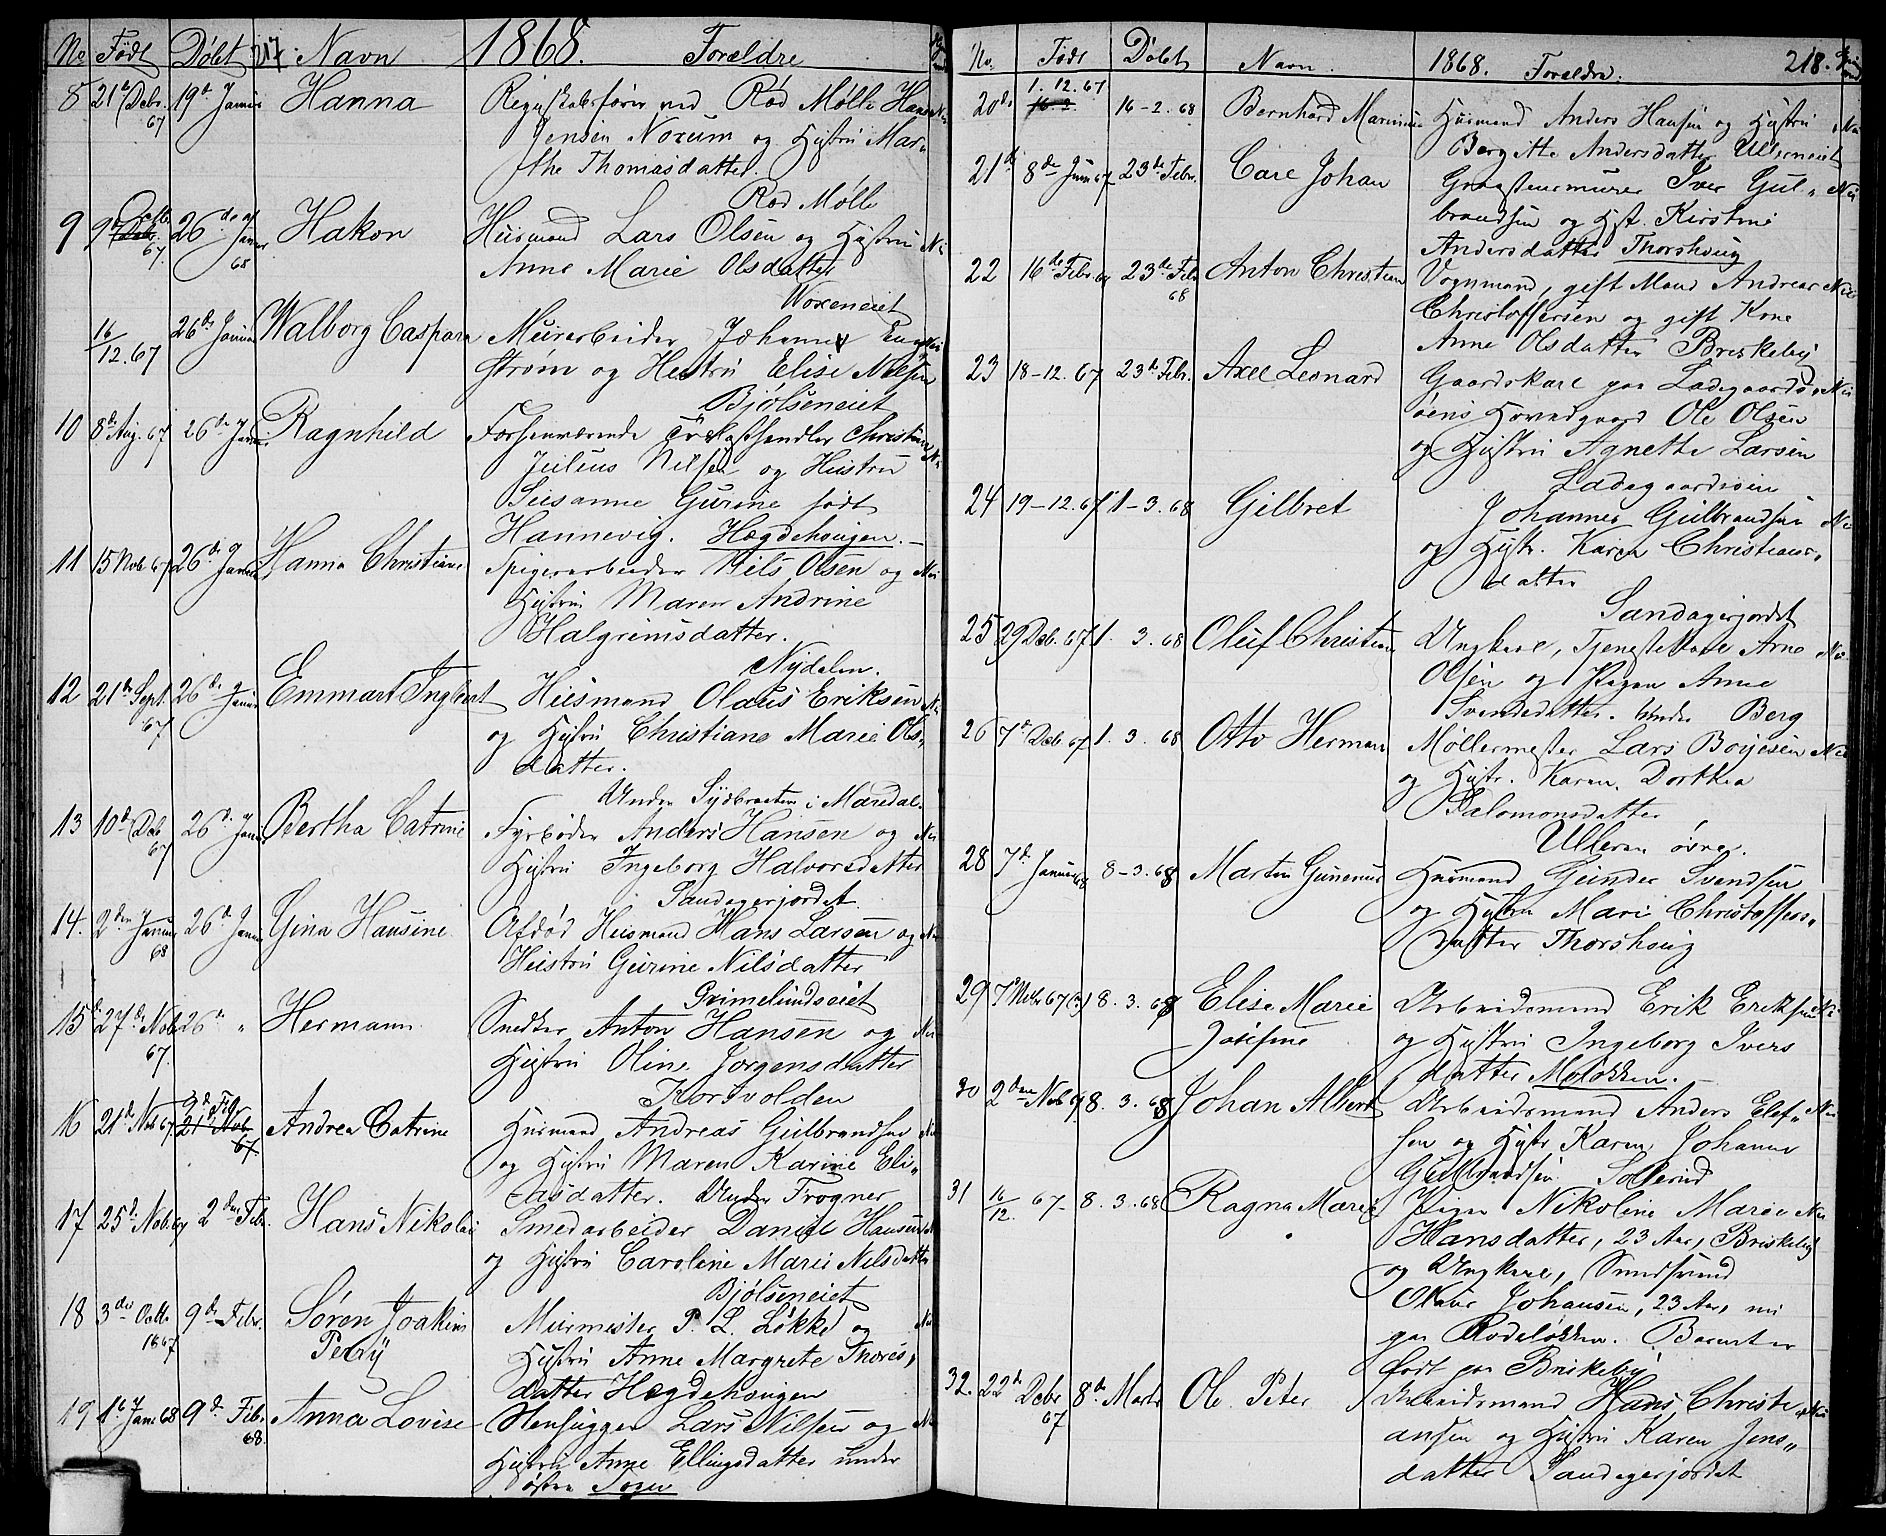 No Født Døbt 217 Navn 1868. Forældre
8 21de Debr. 67 19de Januar Hanna Regnskabsfører ved Rød Mølle Hans
Jensen Norum og Hustru Mar-
the Thomasdatter.
Rød Mølle
9 9de Octbr. 67. 26de Januar 68 Hakon Husmand Lars Olsen og Hustru
Anne Marie Olsdatter
Woxeneiet
16/12.67 26de Januar Walborg Caspara Murarbeider Johannes Eng-
strøm og Hustru Elise Nilsen
Bjølseneiet
10 8de Aug. 67 26de Januar Ragnhild Forhenværende Christian
Julius Nilsen og Hustru
Susanne Gurine født
Hannevig. Hægdehougen.
11 15 Nob 67 26de Januar Hanna Christiane Spigerarbeider Nils Olsen og
Hustru Maren Andrine
Halgrimsdatter.
Nydalen.
12 21de Sept. 67 26de Januar Emmart Ingbert Husmand Olaus Eriksen
og Hustru Christiane Marie Ols-
datter.
Under Sydbraaten i Maredal.
13 10de Deb 67 26de Januar Bertha Catrine Fyrbøder Anders Hansen og
Hustru Ingeborg Halvorsdatter
Sandagerjordet
14. 2den Januar 68 26de Januar Gina Hansine Afdød Husmand Hans Larsen og
Hustru Gurine Nilsdatter
Grimelundseiet
15 27de Nob 67. 26de " Hermann Snedker Anton Hansen og
Hustru Oline Jørgensdatter
Korsvolden
16 21de Nob 67 9de Feb 21de Nob 67 Andrea Catrine Husmand Andreas Gulbrandsen
og Hustru Maren Karine Eli-
asdatter. Under Frogner
17 25de Nob 67 2den Febr. Hans Nikolai Smedarbeider Daniel Hansen
og Hustru Caroline Marie Nilsdatter
Bjølseneiet
18 3die Octb. 1867 9de Febr. Søren Joakim Murmester P. L. Løkke og
Perry Hustru Anne Margrete Thores-
datter Hægdehougen
19 16 Janr 68 9de Febr. 68. Anna Lovise Stenhugger Lars Nilsen og
Hustru Anne Ellingsdatter under
østre Sogn
No. Født Døbt Navn. 1868. Forældre. 218.
20de 1.12.67 16-2.68 Bernhard Marinius Husmand Anders Hansen og Hustru
Bergitte Andersdatter Ullerneiet
21de 8de Juni 67 23de Febr. Carl Johan Graastensmurer Iver Gul-
brandsen og Hust. Kirstine
Andersdatter Thorshoug
22 16de Febr. 67 23de Feb 68 Anton Christian Vognmand, gift Mand Andreas
Christoffersen og gift Kone
Anne Olsdatter Briskeby
23 18-12.67 23de Febr. Axel Leonard Gaardskarl paa Ladegaards-
øens Hovedgaard Ole Olsen
og Hustru Agnette Larsen
Ladegaardsøen
24 19-12.67 1-3.68 Gilbret Johannes Gulbrandsen
og Hustr. Karen Christians-
datter
Sandagerjordet
25 29 Deb. 67 1. 3. 68 Oluf Christian Ungkarl, Tjenestekarl Arne
Olsen og Pigen Anne
Svendsdatter. Nordre Berg
26 7de Deb 67 1. 3. 68 Otto Herman Møllermester Lars Boyesen
og Hustr. Karen Dorthea
Salomonsdatter
Ullern øvre.
28 7de Januar 68 8-3.68 Martin Gunerius Husmand Gunder Svendsen
og Hustru Mari Christoffers-
datter Thorshoug
29 7de Nobr 67 8. 3. 68 Elise Marie Arbeidsmand Erik Eriksen
Josefine og Hustru Ingeborg Ivers
datter Moløkken.
30 2den Nob 67 8. 3. 68 Johan Albert Arbeidsmand Anders Elef-
sen og Hustr Karen Johanne
Gulbrandsen. Sollerud
31 16/12. 67- 8. 3. 68 Ragna Marie Pigen Nikoline Marie
Hansdatter, 23 Aar, Briskeby
og Ungkarl, Smedsvend
Olaus Johansen, 23 Aar, nu
paa Rodeløkken. Barnet er
født paa Briskeby
32. 22de Debr 67 8de Marts Ole Peter Arbeidsmand Hans Christi-
ansen og Hustru Karen Jens-
datter Sandagerjordet